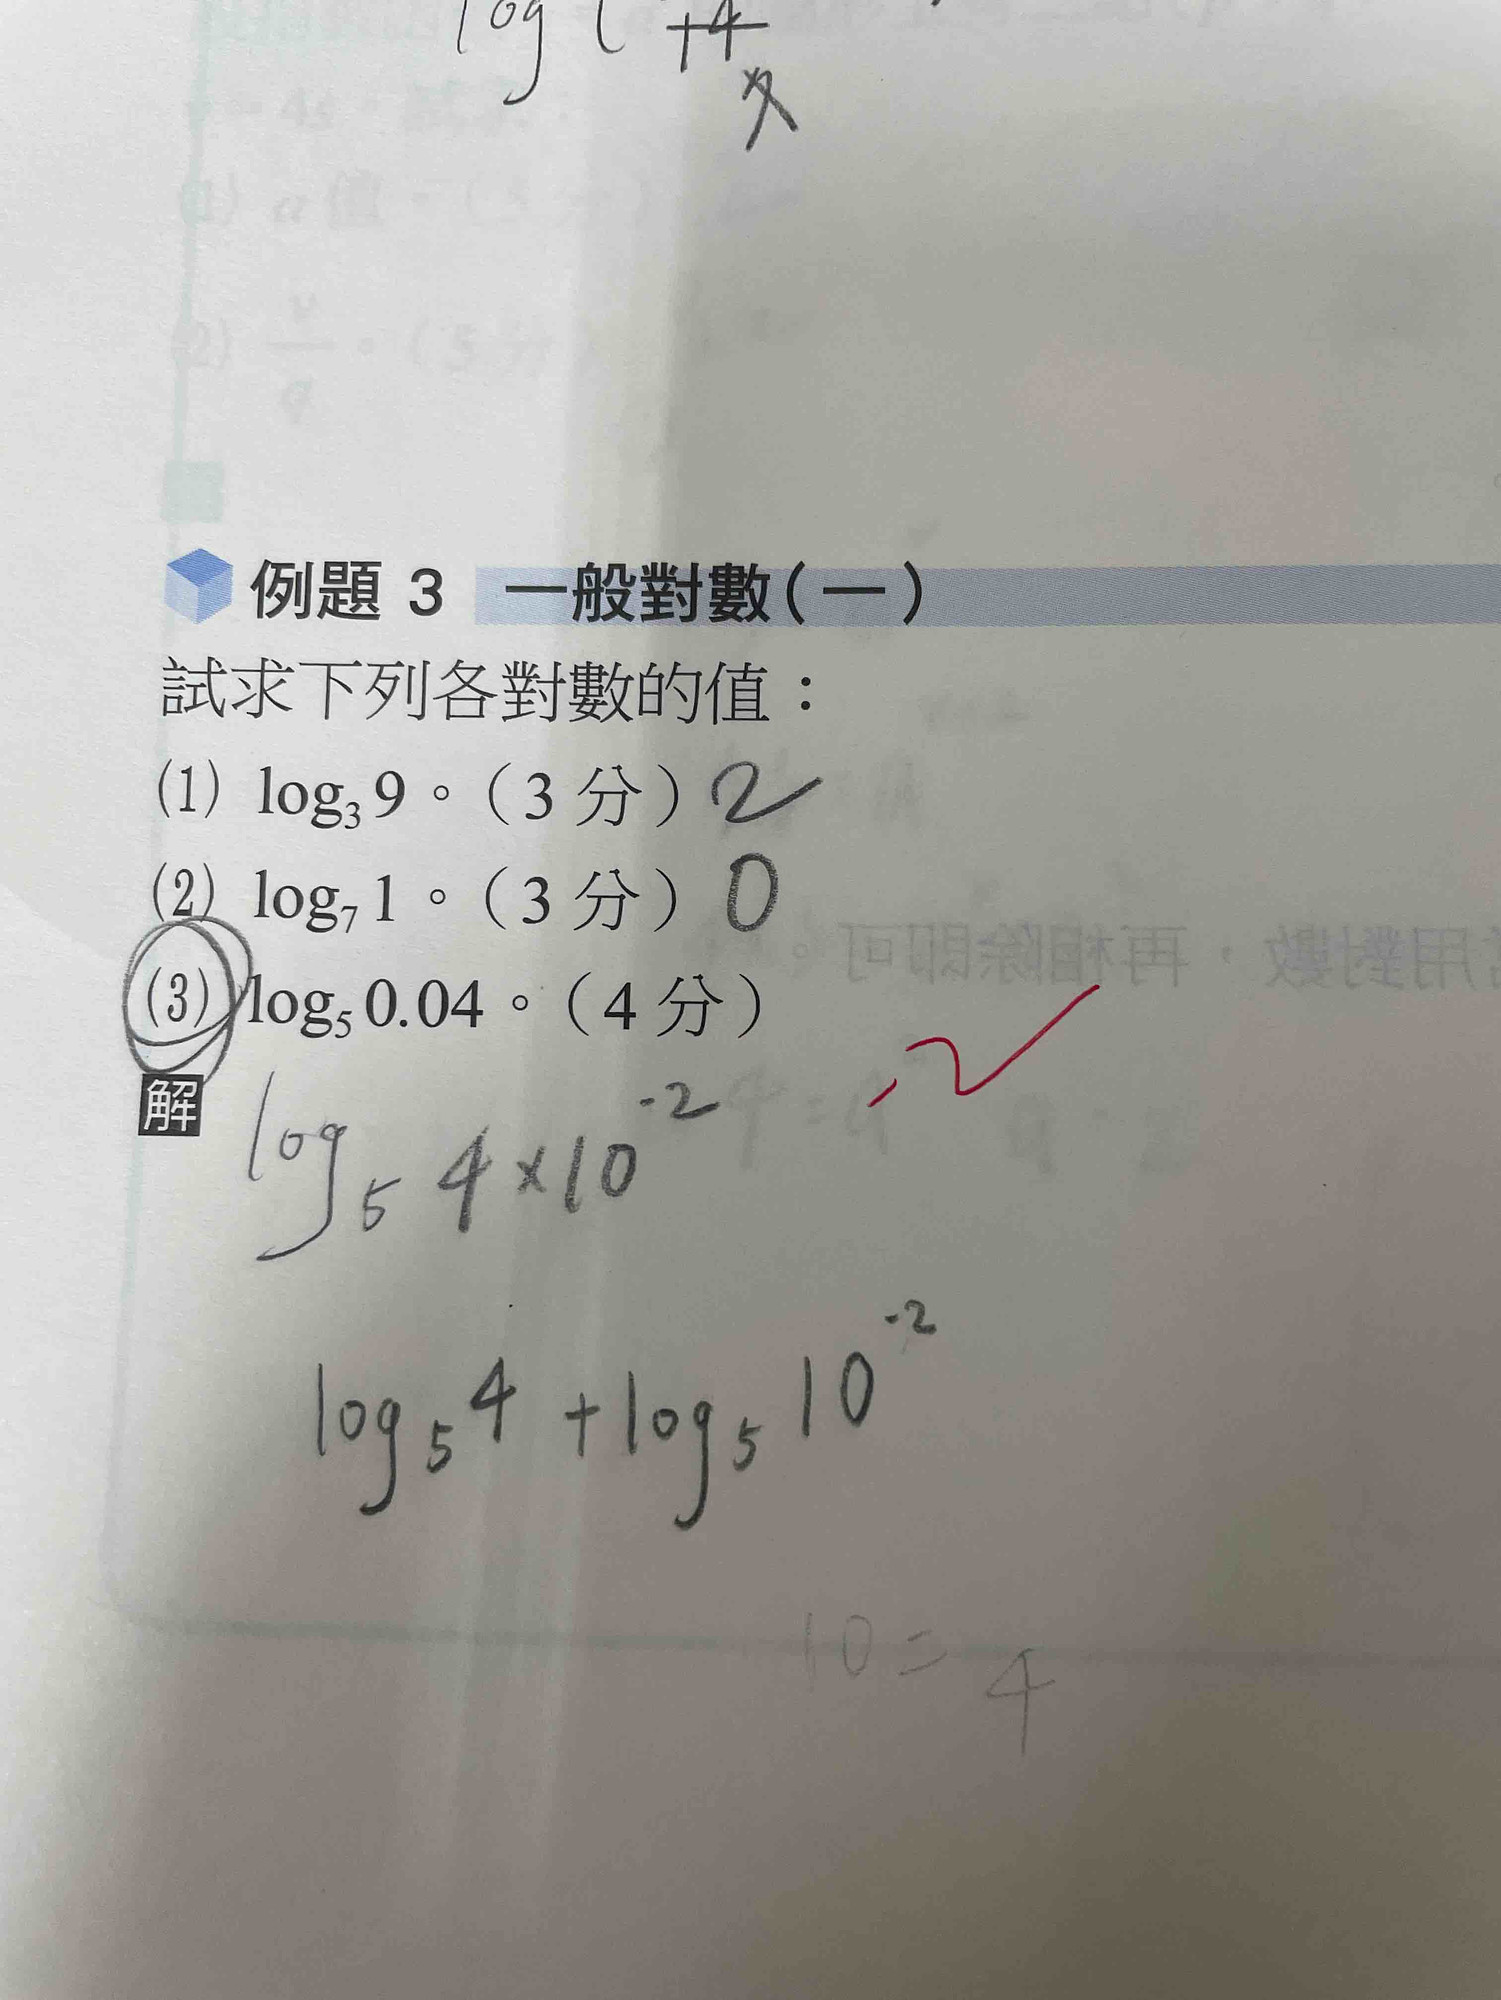 log
+4
例題 3 一般對數(一)
試求下列各對數的值：
(1) log₃ 9。(3 分) 2
(2) log₇ 1。(3 分) 0
(3) log₅ 0.04。(4 分)
-2
解
log₅ 4×10⁻²
log₅ 4 + log₅ 10⁻²
10 = 4